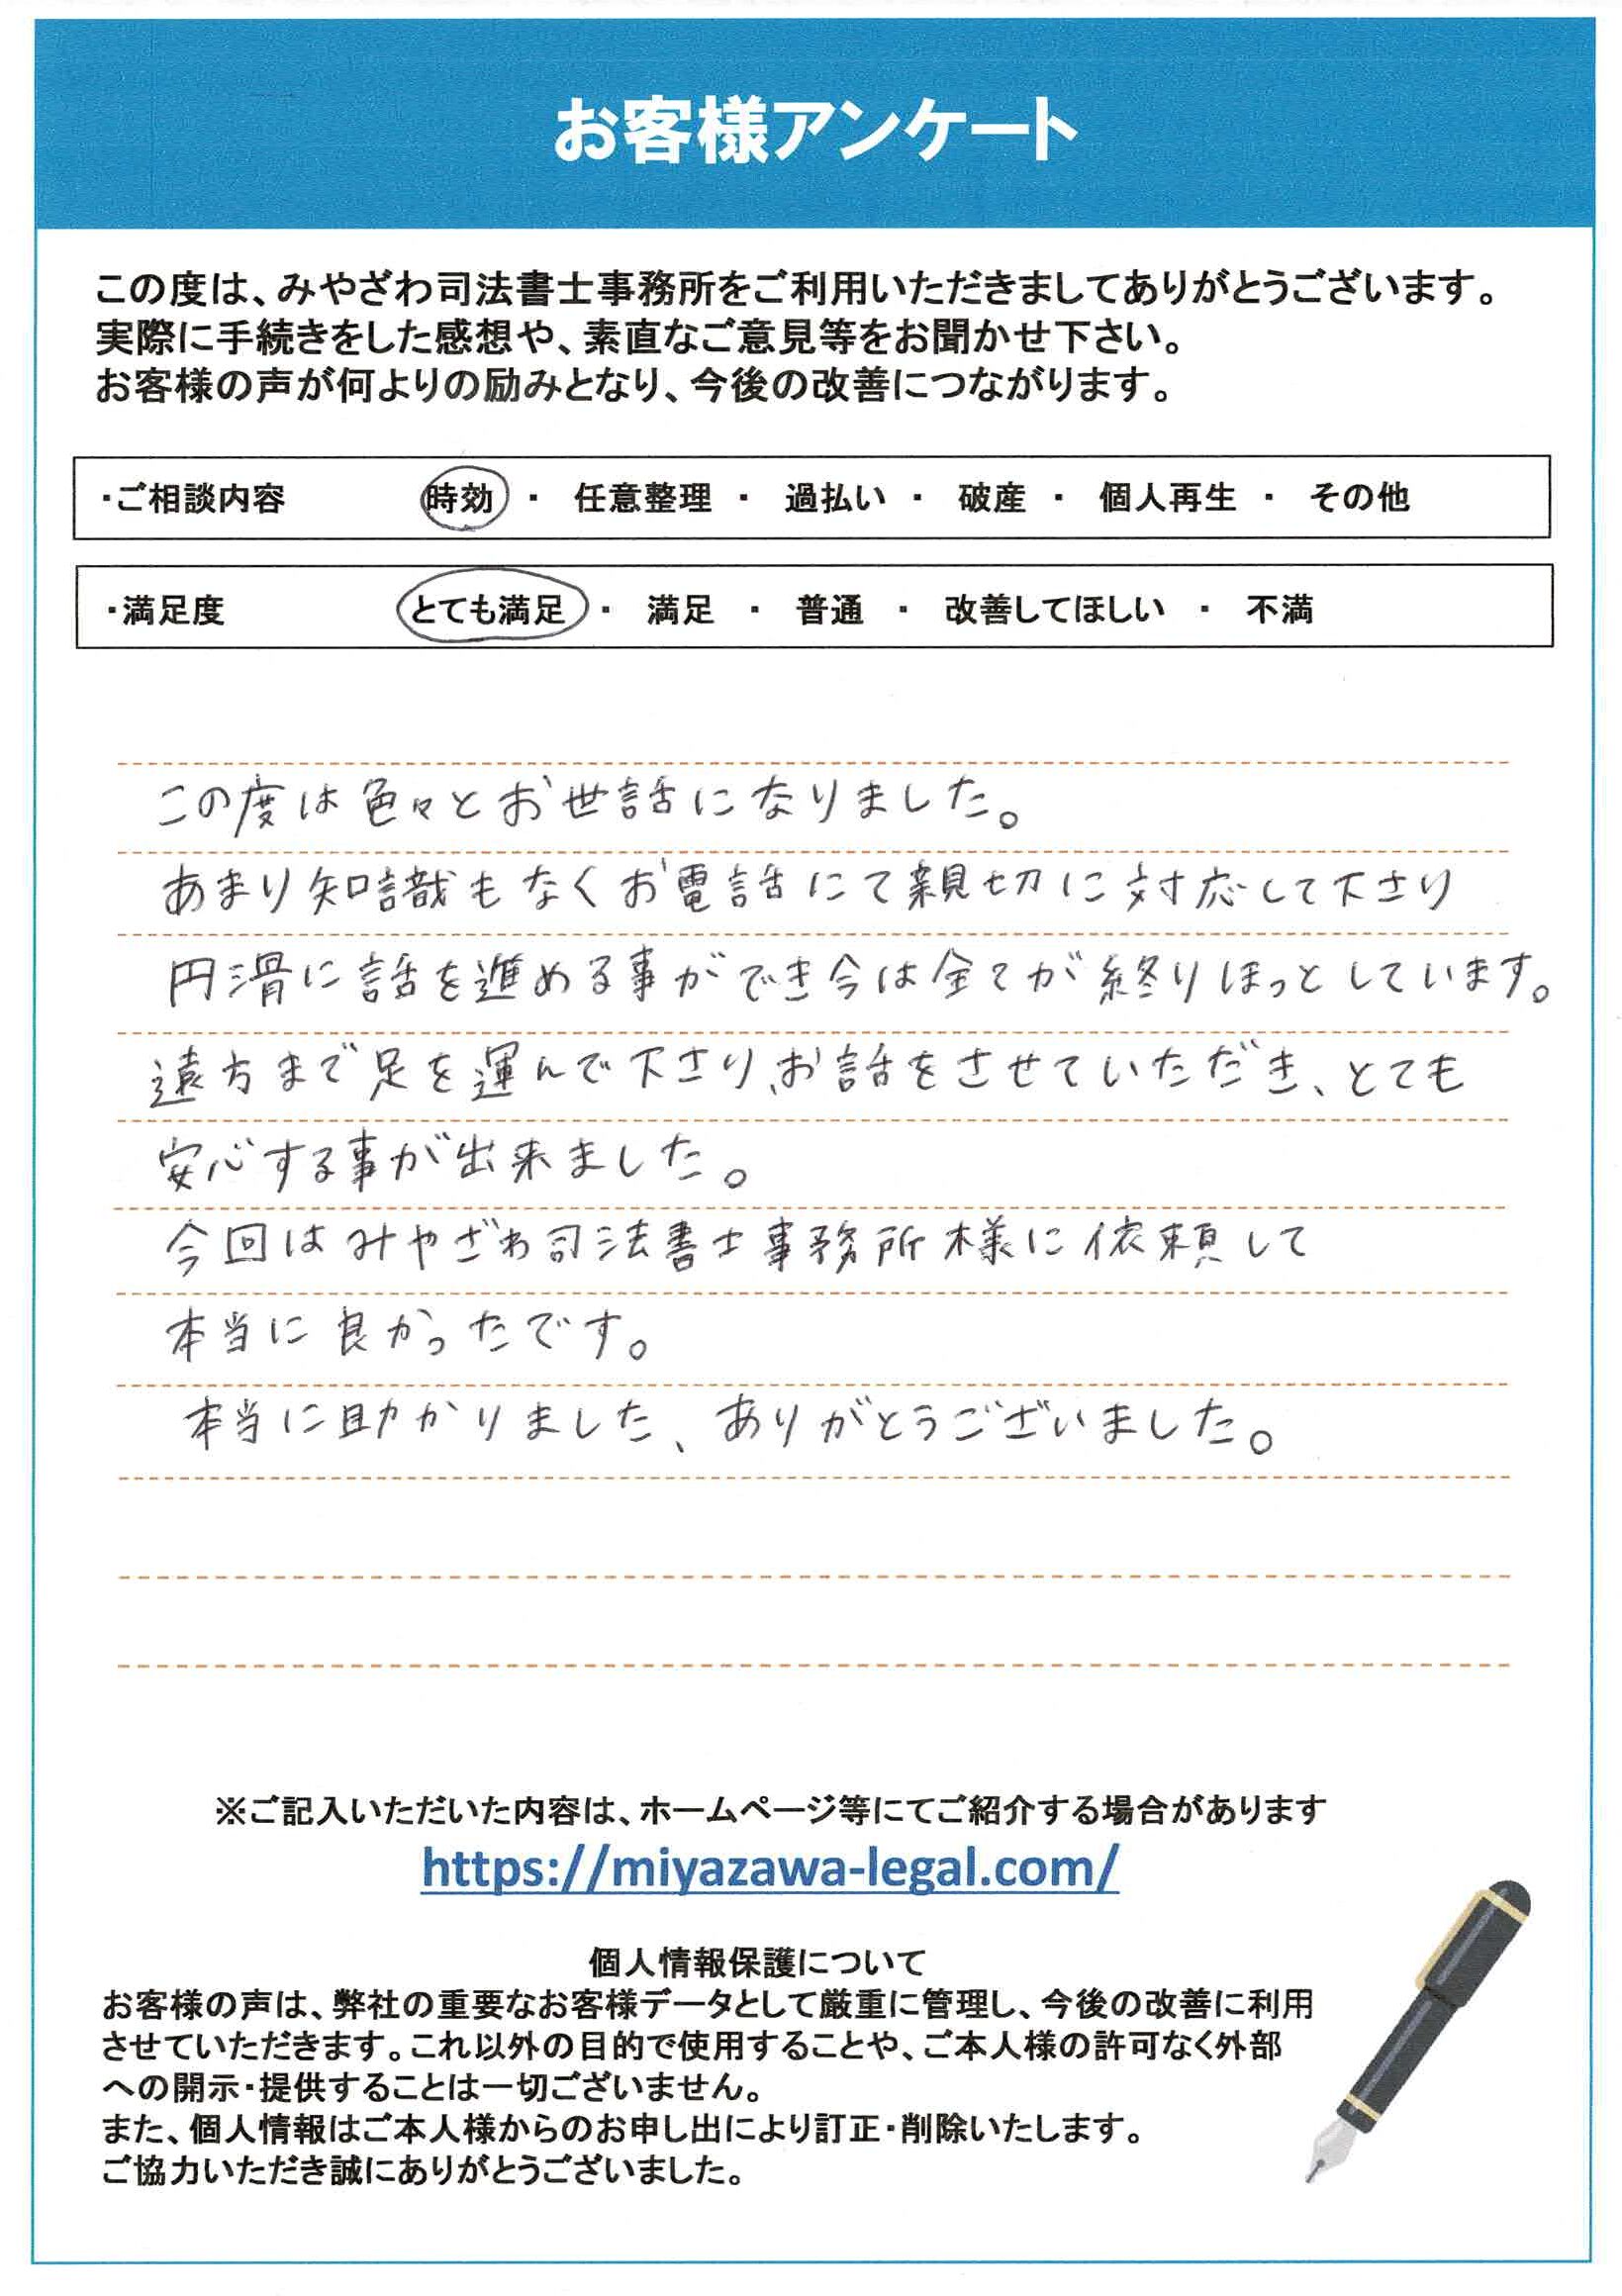 お客様アンケート
この度は、みやざわ司法書士事務所をご利用いただきましてありがとうございます。
実際に手続きをした感想や、素直なご意見等をお聞かせ下さい。
お客様の声が何よりの励みとなり、今後の改善につながります。
・ご相談内容 時効 ・ 任意整理 ・ 過払い ・ 破産 ・ 個人再生 ・ その他
・満足度 とても満足 ・ 満足 ・ 普通 ・ 改善してほしい ・ 不満
この度は色々とお世話になりました。
あまり知識もなくお電話にて親切に対応して下さり
円滑に話を進める事ができ今は全てが終りほっとしています。
遠方まで足を運んで下さり、お話をさせていただき、とても
安心する事が出来ました。
今回はみやざわ司法書士事務所様に依頼して
本当に良かったです。
本当に助かりました、ありがとうございました。
※ご記入いただいた内容は、ホームページ等にてご紹介する場合があります
https://miyazawa-legal.com/
個人情報保護について
お客様の声は、弊社の重要なお客様データとして厳重に管理し、今後の改善に利用
させていただきます。これ以外の目的で使用することや、ご本人様の許可なく外部
への開示・提供することは一切ございません。
また、個人情報はご本人様からのお申し出により訂正・削除いたします。
ご協力いただき誠にありがとうございました。